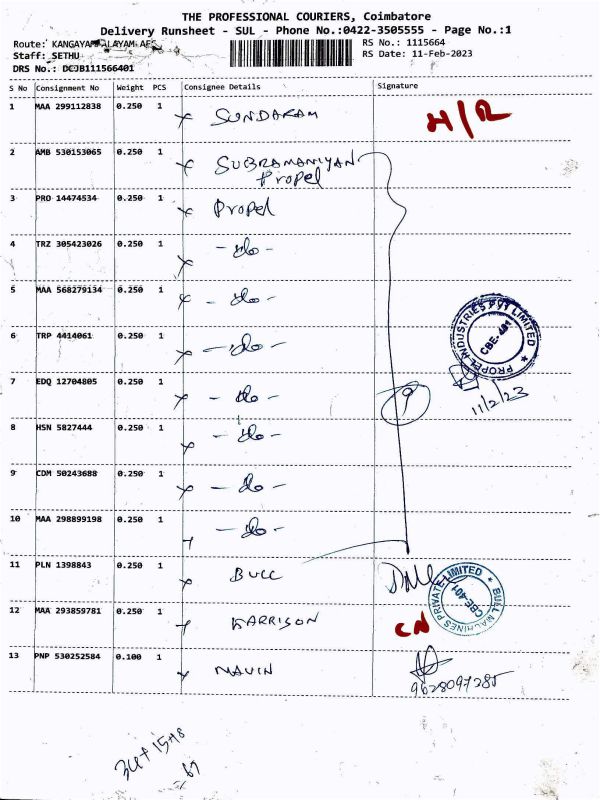 THE PROFESSIONAL COURIERS, Coimbatore
Delivery Runsheet - SUL - Phone No.:0422-3505555 - Page No.:1
Route: KANGAYAMPALAYAM AFS
RS No.: 1115664
Staff: SETHU
RS Date: 11-Feb-2023
DRS No.: DCJB111566401
S No Consignment No Weight PCS Consignee Details Signature
1 MAA 299112838 0.250 1 SUNDARAM H/R
2 AMB 530153065 0.250 1 SUBRAMANIYAN
Propel
3 PRO 14474534 0.250 1 Propel
4 TRZ 305423026 0.250 1 -do-
5 MAA 568279134 0.250 1 -do-
6 TRP 4414061 0.250 1 -do-
PROPEL INDUSTRIES PVT LIMITED
CBE-401
7 EDQ 12704805 0.250 1 -do- 9
11/2/23
8 HSN 5827444 0.250 1 -do-
9 CDM 50243688 0.250 1 -do-
10 MAA 298899198 0.250 1 -do-
11 PLN 1398843 0.250 1 BULL
BULL MACHINES PRIVATE LIMITED
CBE-401
12 MAA 293859781 0.250 1 HARRISON CN
13 PNP 530252584 0.100 1 NAVIN
9628097285
34+15+18
67